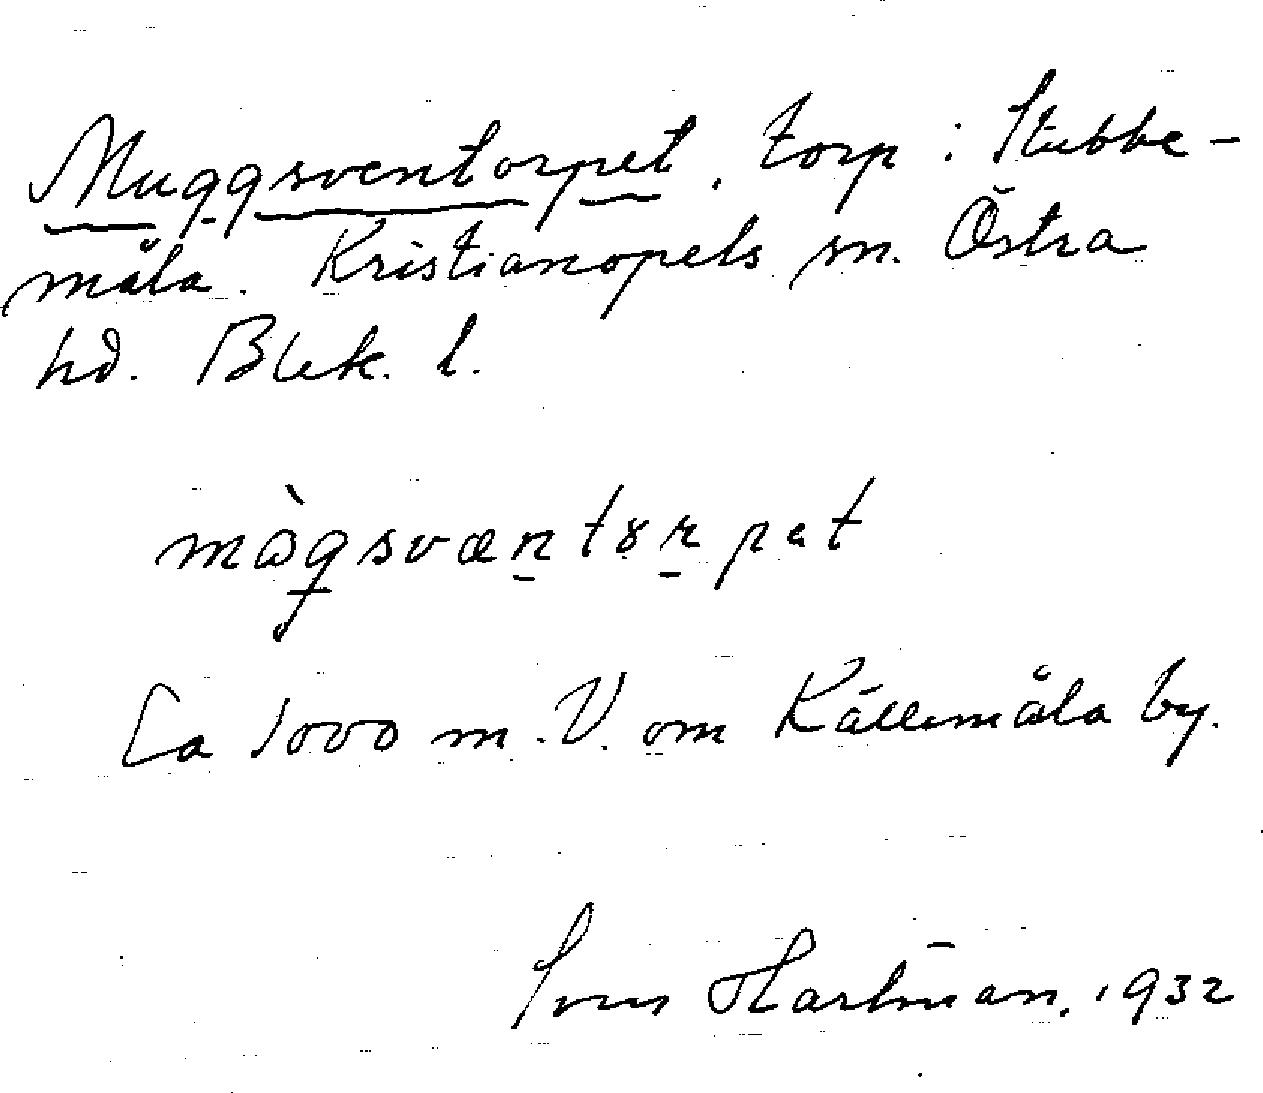 Muggsventorpet, torp i Stubbe-
måla. Kristianopels sn. Östra
hd. Blek. l.
Ca 1000 m. V. om Källemåla by.
Sven Hartman. 1932